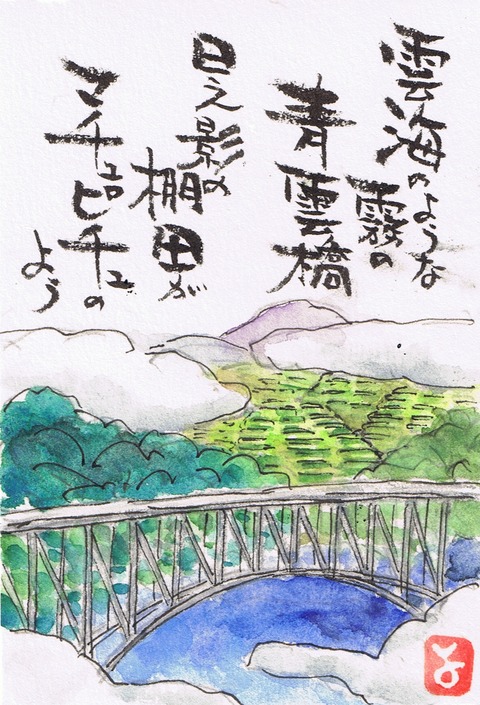 雲海のような
霧の
青雲橋
日之影の
棚田が
マチュピチュの
よう